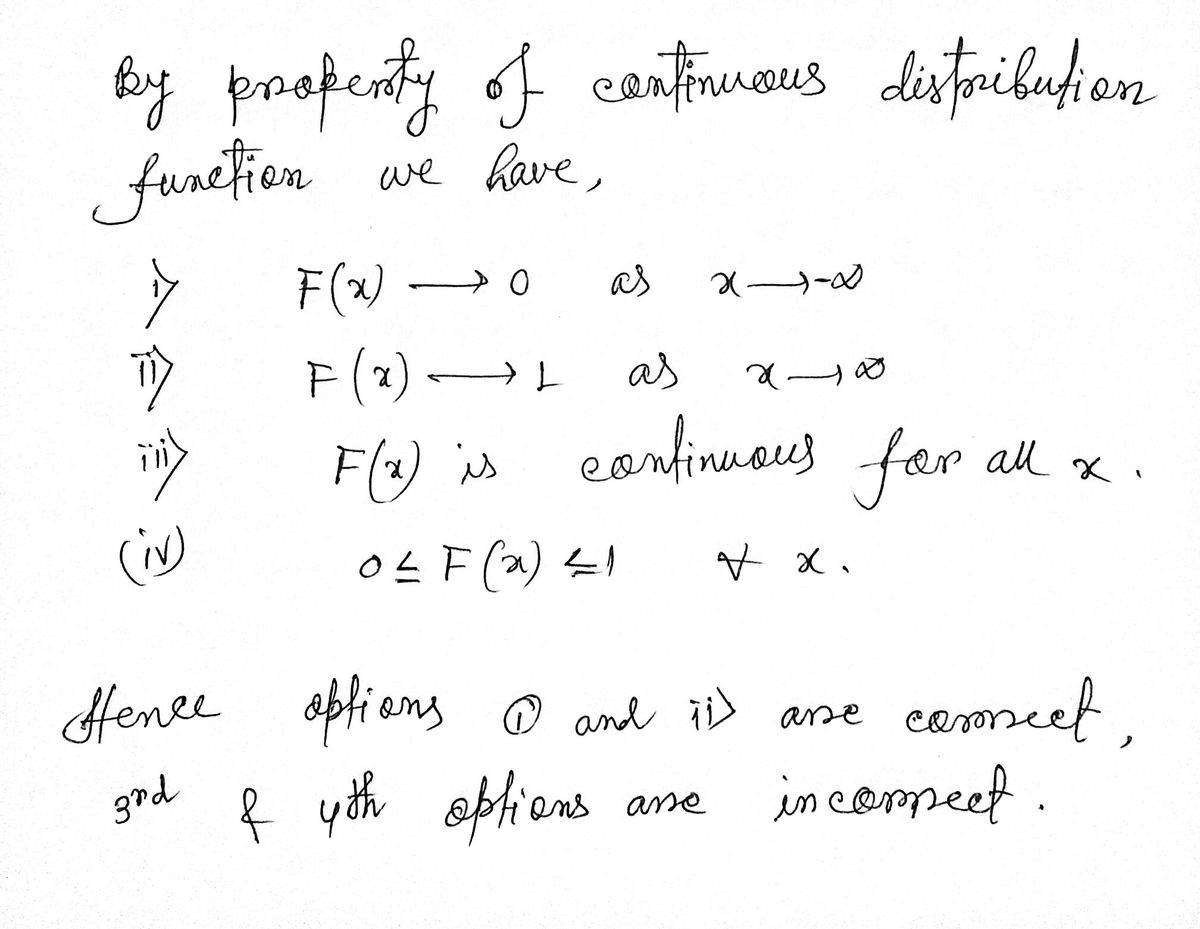 By property of continuous distribution
function we have,
i) F(x) → 0 as x → -∞
ii) F(x) → 1 as x → ∞
iii) F(x) is continuous for all x.
(iv) 0 ≤ F(x) ≤ 1 ∀ x.
Hence options ① and ii) are correct,
3rd & 4th options are incorrect.